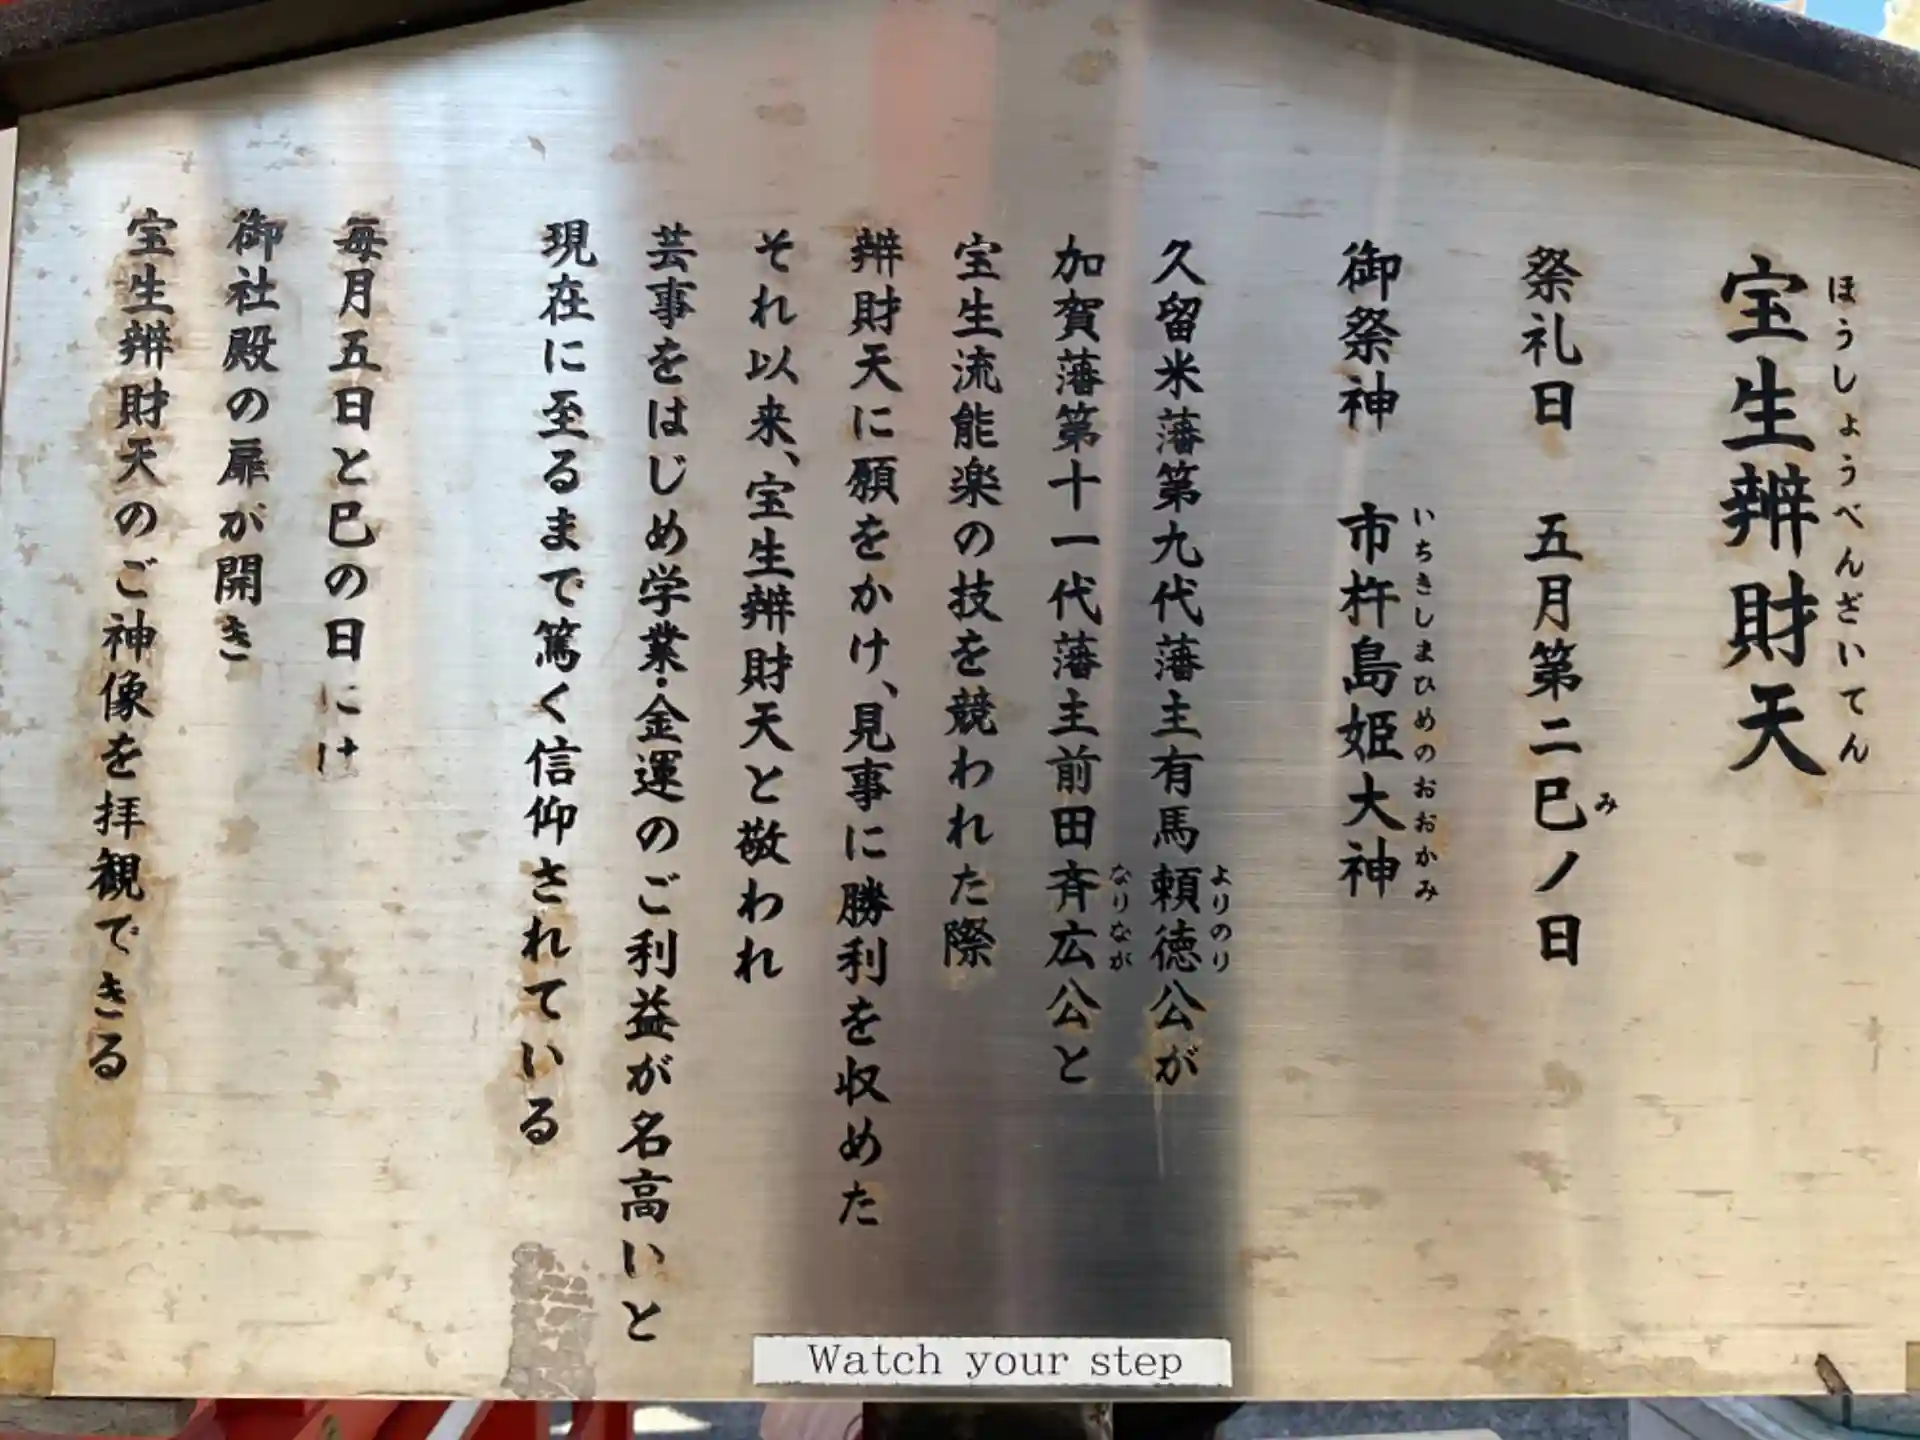 宝生辨財天
ほうしょうべんざいてん
祭礼日　五月第二巳ノ日
み
御祭神　市杵島姫大神
いちきしまひめのおおかみ
久留米藩第九代藩主有馬頼徳公が
よりのり
加賀藩第十一代藩主前田斉広公と
なりなが
宝生流能楽の技を競われた際
辨財天に願をかけ、見事に勝利を収めた
それ以来、宝生辨財天と敬われ
芸事をはじめ学業・金運のご利益が名高いと
現在に至るまで篤く信仰されている
毎月五日と巳の日には
御社殿の扉が開き
宝生辨財天のご神像を拝観できる
Watch your step